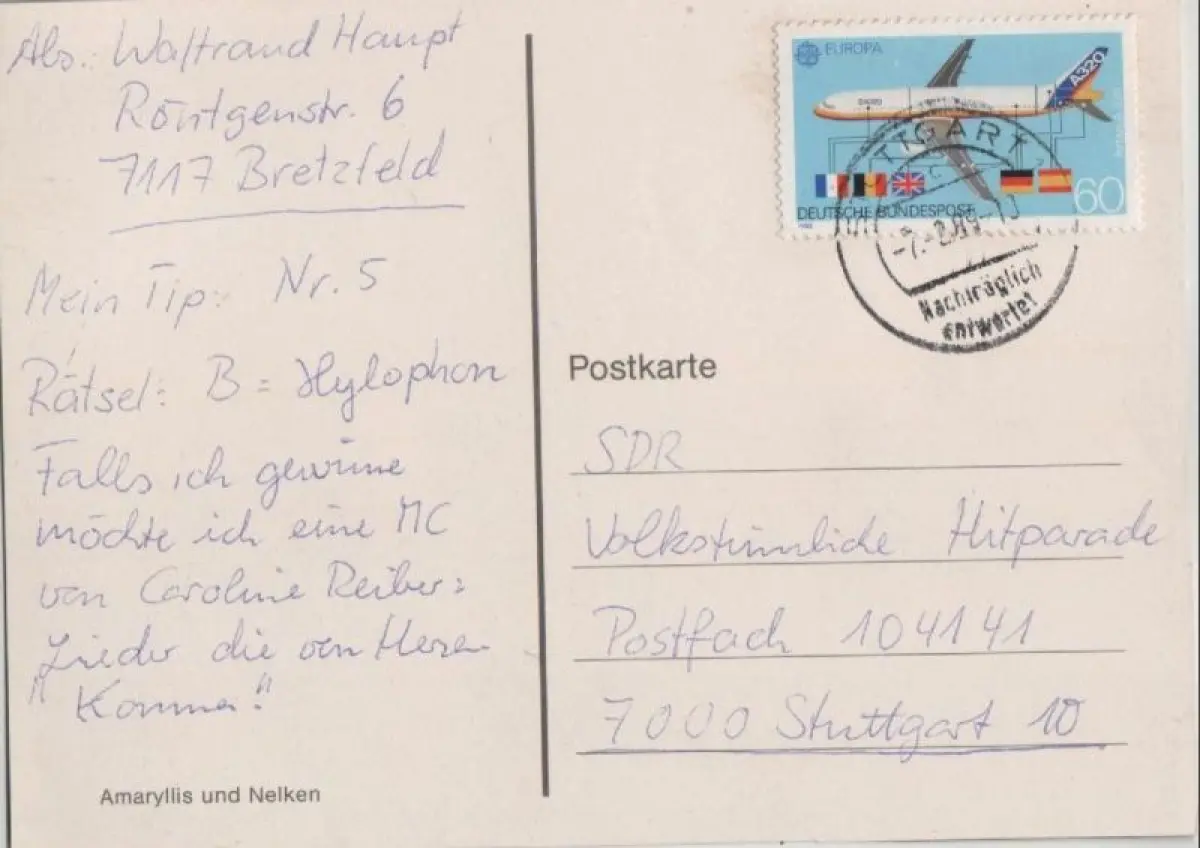 Abs.: Waltraud Haupt
Röntgenstr. 6
7117 Bretzfeld
Mein Tip: Nr. 5
Rätsel: B = Hylophon
Falls ich gewinne
möchte ich eine MC
von Caroline Reiber:
"Lieder die von Herzen
Kommen"
Amaryllis und Nelken
EUROPA
A320
DEUTSCHE BUNDESPOST
60
TTGART
-7.-2.89-
Nachträglich
entwertet
Postkarte
SDR
Volkstümliche Hitparade
Postfach 104141
7000 Stuttgart 10